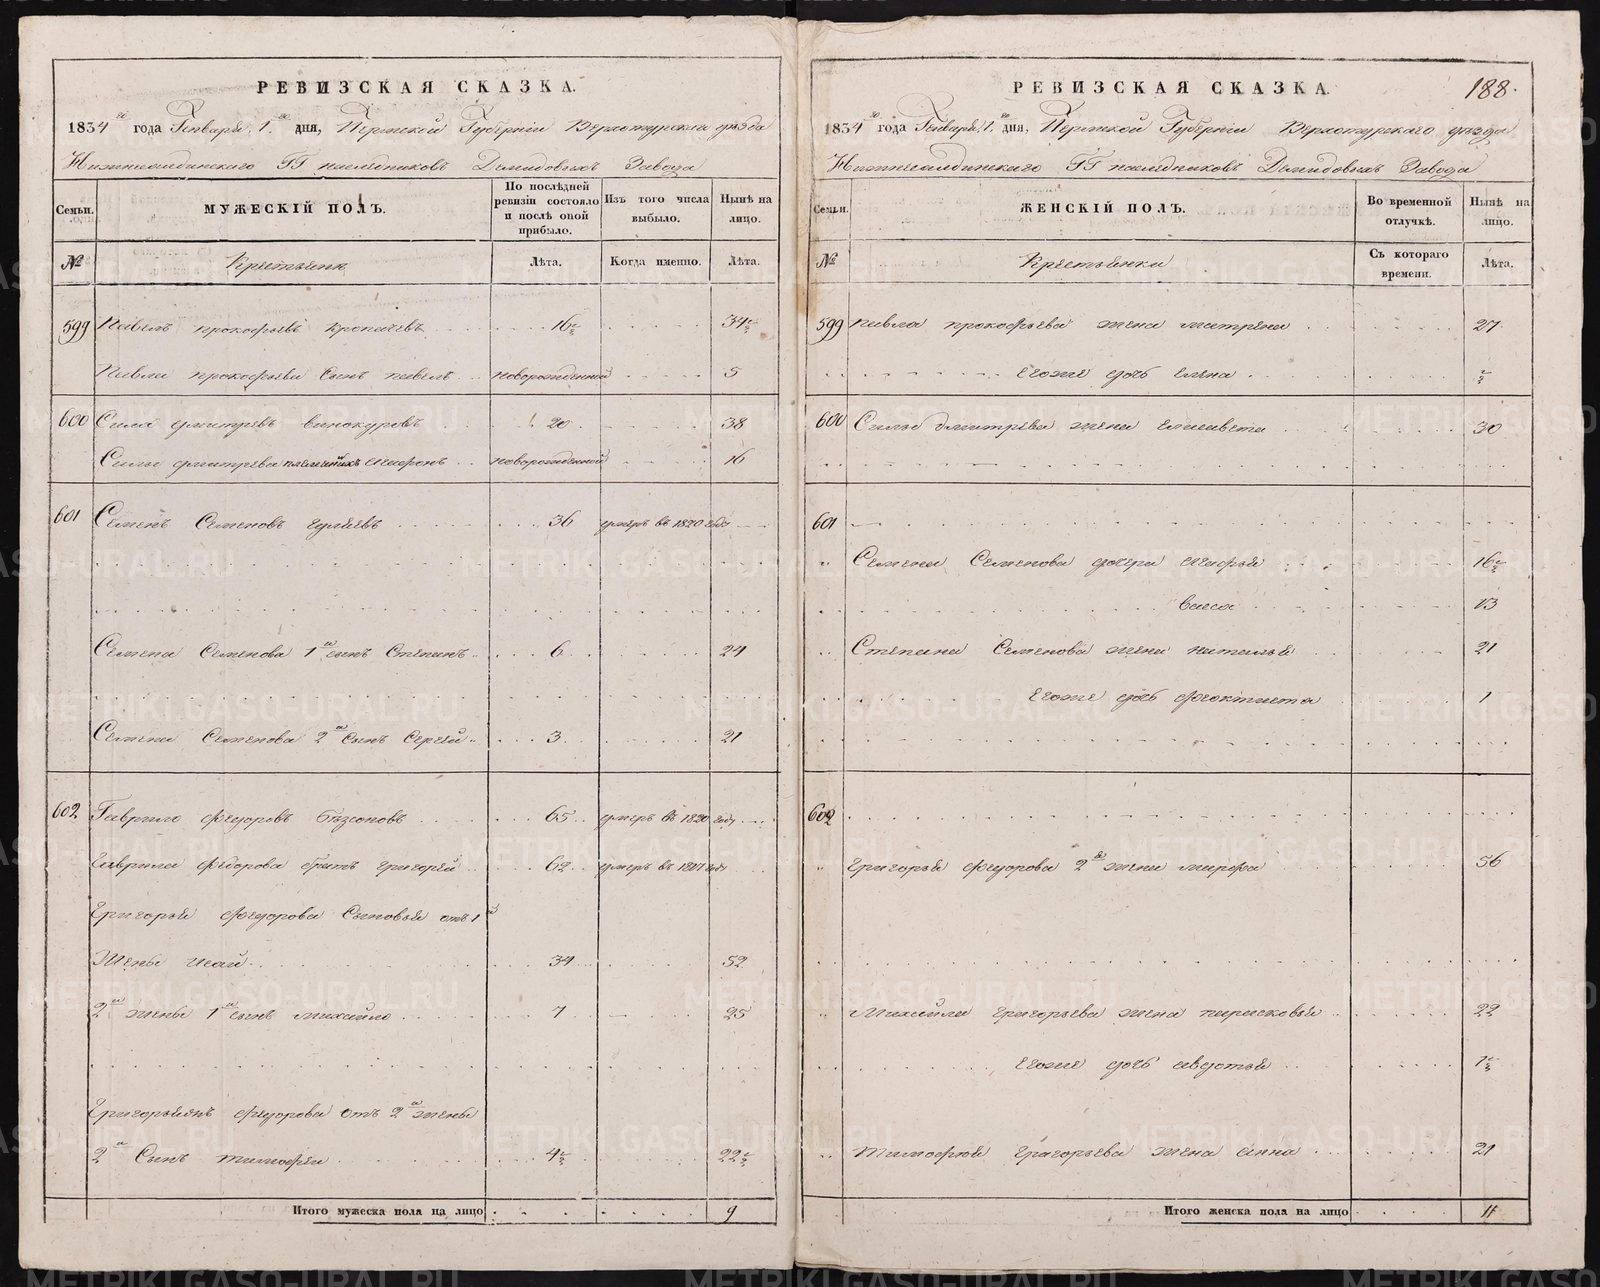 РЕВИЗСКАЯ СКАЗКА.
1834го года Генваря 1го дня, Пермской Губернiи Верхотурскаго уѣзда
Нижнесалдинскаго ГГ наслѣдниковъ Демидовыхъ Завода
Семьи.
МУЖЕСКIЙ ПОЛЪ.
По послѣдней ревизiи состояло и послѣ оной прибыло.
Изъ того числа выбыло.
Нынѣ на лицо.
№
Крестьяне
Лѣта.
Когда именно.
Лѣта.
599 Павелъ прокофьевъ 16½ 34½
Павла прокофьева сынъ павелъ новорожденной 5
600 Сила дмитревъ винокуровъ 20 38
Силы дмитрева племянникъ новорожденной 16
601 Семенъ Семеновъ гуляевъ 36 умеръ въ 1820 году
Семена Семенова 1й сынъ Степанъ 6 24
Семена Семенова 2й сынъ Сергей 3 21
602 Гаврило федоровъ бѣзсоновъ 65 умеръ въ 1820 году
Гаврила федорова братъ григорей 62 умеръ въ 1827 году
Григорья федорова сыновья отъ 1й
жены исай 34 52
2й жены 1й сынъ михайло 7 25
федорова отъ 2й жены
2й сынъ тимофей 4½ 22½
Итого мужеска пола на лицо 9
РЕВИЗСКАЯ СКАЗКА. 188.
1834го года Генваря 1го дня, Пермской Губернiи Верхотурскаго уѣзда
Нижнесалдинскаго ГГ наслѣдниковъ Демидовыхъ Завода
Семьи.
ЖЕНСКIЙ ПОЛЪ.
Во временной отлучкѣ.
Нынѣ на лицо.
№
Крестьянки
Съ котораго времени.
Лѣта.
599 павла прокофьева жена матрена 27
Егоже дочь елена ½
600 Силы дмитрева жена елисавета 30
601
Семена Семенова дочери марфа 16½
васса 13
Степана Семенова жена наталья 21
Егоже дочь феоктиста 1
602
Григорья федорова 2я жена марфа 56
Михайла григорьева жена парасковья 22
Егоже дочь авдотья 1½
Тимофея григорьева жена анна 21
Итого женска пола на лицо 11